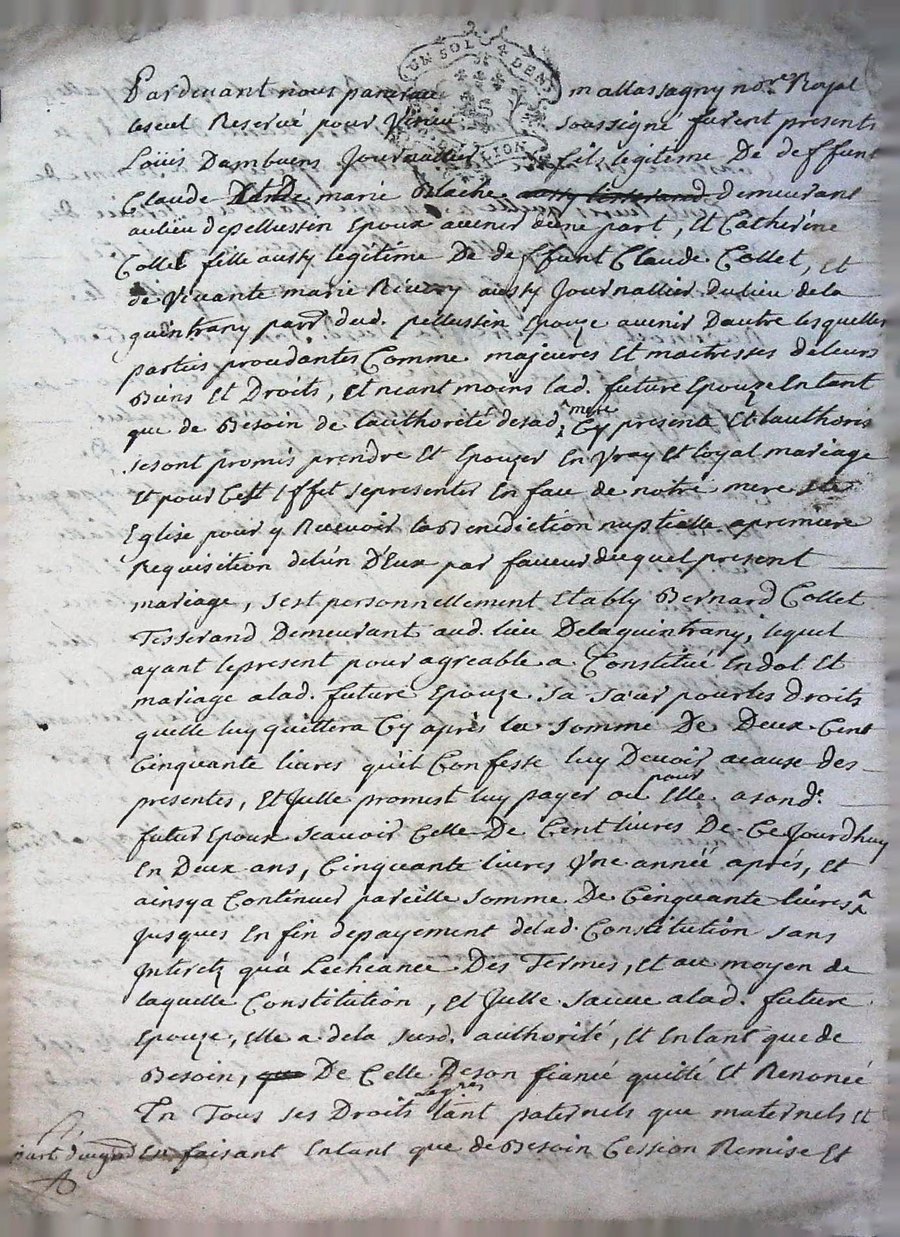 UN SOL 4 DEN
Pardevant nous mallassagny no.re Royal
Reservé pour soussigné furent presents
Loüis Dambuens Journallier fils legitime De deffunt
Claude marie Blache Demeurant
aulieu depellussin Epoux avenir d'une part, Et Catherine
Collet fille aussy legitime De deffunt Claude Collet, Et
de Vivante marie Rivory aussy Journallier Dulieu dela
quintrany parr dud. pellussin Epouze avenir D'autre lesquelles
parties proceddantes Comme majeures Et maitresses deleurs
Biens Et Droits, Et neant moins lad. future Epouze Entant
que de Besoin de l'authorité desad. mere Cy presente Et l'authoris
sesont promis prendre Et Epouzer En Vray Et loyal mariage
Et pour Cest Effet sepresenter En face de notre mere Ste
Eglise pour y Recevoir la Benediction nuptialle apremiere
Requisition delún D'Eux par faveur duquel present
mariage, s'est personnellement Etably Bernard Collet
Tisserand Demeurant aud. lieu Delaquintrany, lequel
ayant lepresent pour agreable a Constitué Endot Et
mariage alad. future Epouze sa sœur pourles droits
quelle luy quittera Cy après la somme De Deux Cent
Cinquante livres qu'il Confesse luy Devoir acause des
presentes, Et Jcelle promest luy payer ou pour Elle asond.
futur Epoux scavoir Celle De Cent livres De Ce Jourdhuy
En Deux ans, Cinquante livres Vne année aprés, Et
ainsy a Continuer pareille somme De Cinquante livres
Jusques En fin depayement delad. Constitution sans
Jnteretz qu'à Lecheance Des Termes, Et au moyen de
laquelle Constitution, Et Jcelle sauve alad. future
Epouze, Elle a dela susd. authorité, Et Entant que de
Besoin, De Celle Deson fiancé quitté Et Renoncé
En Tous ses Droits tant paternels que maternels Et
En faisant Entant que de Besoin Cession Remise Et